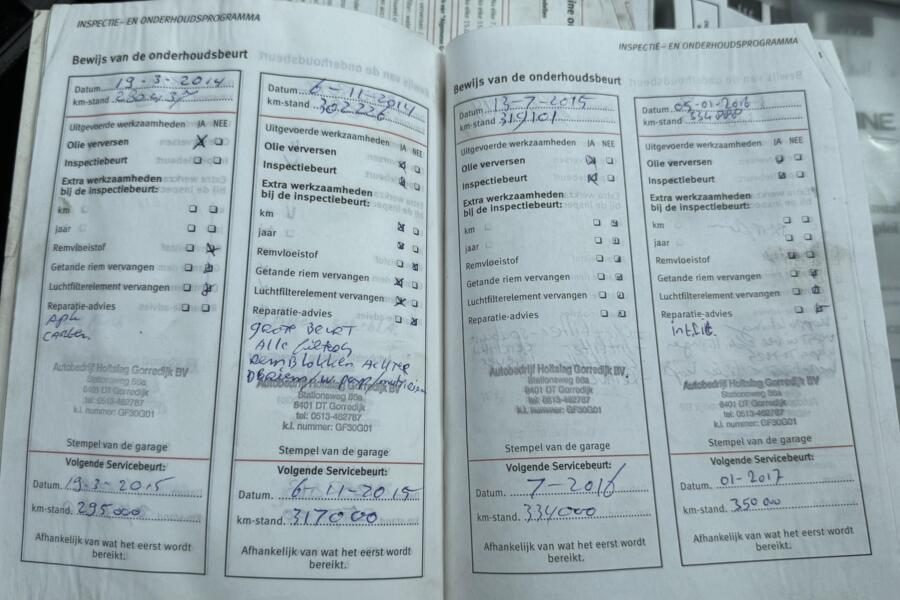 INSPECTIE- EN ONDERHOUDSPROGRAMMA
Bewijs van de onderhoudsbeurt
Datum. 19-3-2014
km-stand
Uitgevoerde werkzaamheden JA NEE
Olie verversen
Inspectiebeurt
Extra werkzaamheden
bij de inspectiebeurt:
km
jaar
Remvloeistof
Getande riem vervangen
Luchtfilterelement vervangen
Reparatie-advies
APK
Autobedrijf Holtslag Gorredijk BV
Stationsweg 86a
8401 DT Gorredijk
tel: 0513-462787
k.l. nummer: GF30G01
Stempel van de garage
Volgende Servicebeurt:
Datum. 19-3-2015
km-stand. 295000
Afhankelijk van wat het eerst wordt
bereikt.
Datum. 6-11-2014
km-stand. 302226
Uitgevoerde werkzaamheden JA NEE
Olie verversen
Inspectiebeurt
Extra werkzaamheden
bij de inspectiebeurt:
km
jaar
Remvloeistof
Getande riem vervangen
Luchtfilterelement vervangen
Reparatie-advies
GROTE BEURT
Alle filters
RemBlokken Achter
Autobedrijf Holtslag Gorredijk BV
Stationsweg 86a
8401 DT Gorredijk
tel: 0513-462787
k.l. nummer: GF30G01
Stempel van de garage
Volgende Servicebeurt:
Datum. 6-11-2015
km-stand. 317000
Afhankelijk van wat het eerst wordt
bereikt.
INSPECTIE- EN ONDERHOUDSPROGRAMMA
Bewijs van de onderhoudsbeurt
Datum. 13-7-2015
km-stand 319101
Uitgevoerde werkzaamheden JA NEE
Olie verversen
Inspectiebeurt
Extra werkzaamheden
bij de inspectiebeurt:
km
jaar
Remvloeistof
Getande riem vervangen
Luchtfilterelement vervangen
Reparatie-advies:
Autobedrijf Holtslag Gorredijk BV
Stationsweg 86a
8401 DT Gorredijk
tel: 0513-462787
k.l. nummer: GF30G01
Stempel van de garage
Volgende Servicebeurt:
Datum. 7-2016
km-stand. 334000
Afhankelijk van wat het eerst wordt
bereikt.
Datum. 05-01-2016
km-stand 334000
Uitgevoerde werkzaamheden JA NEE
Olie verversen
Inspectiebeurt
Extra werkzaamheden
bij de inspectiebeurt:
km
jaar
Remvloeistof
Getande riem vervangen
Luchtfilterelement vervangen
Reparatie-advies
Autobedrijf Holtslag Gorredijk BV
Stationsweg 86a
8401 DT Gorredijk
tel: 0513-462787
k.l. nummer: GF30G01
Stempel van de garage
Volgende Servicebeurt:
Datum. 01-2017
km-stand. 350000
Afhankelijk van wat het eerst wordt
bereikt.